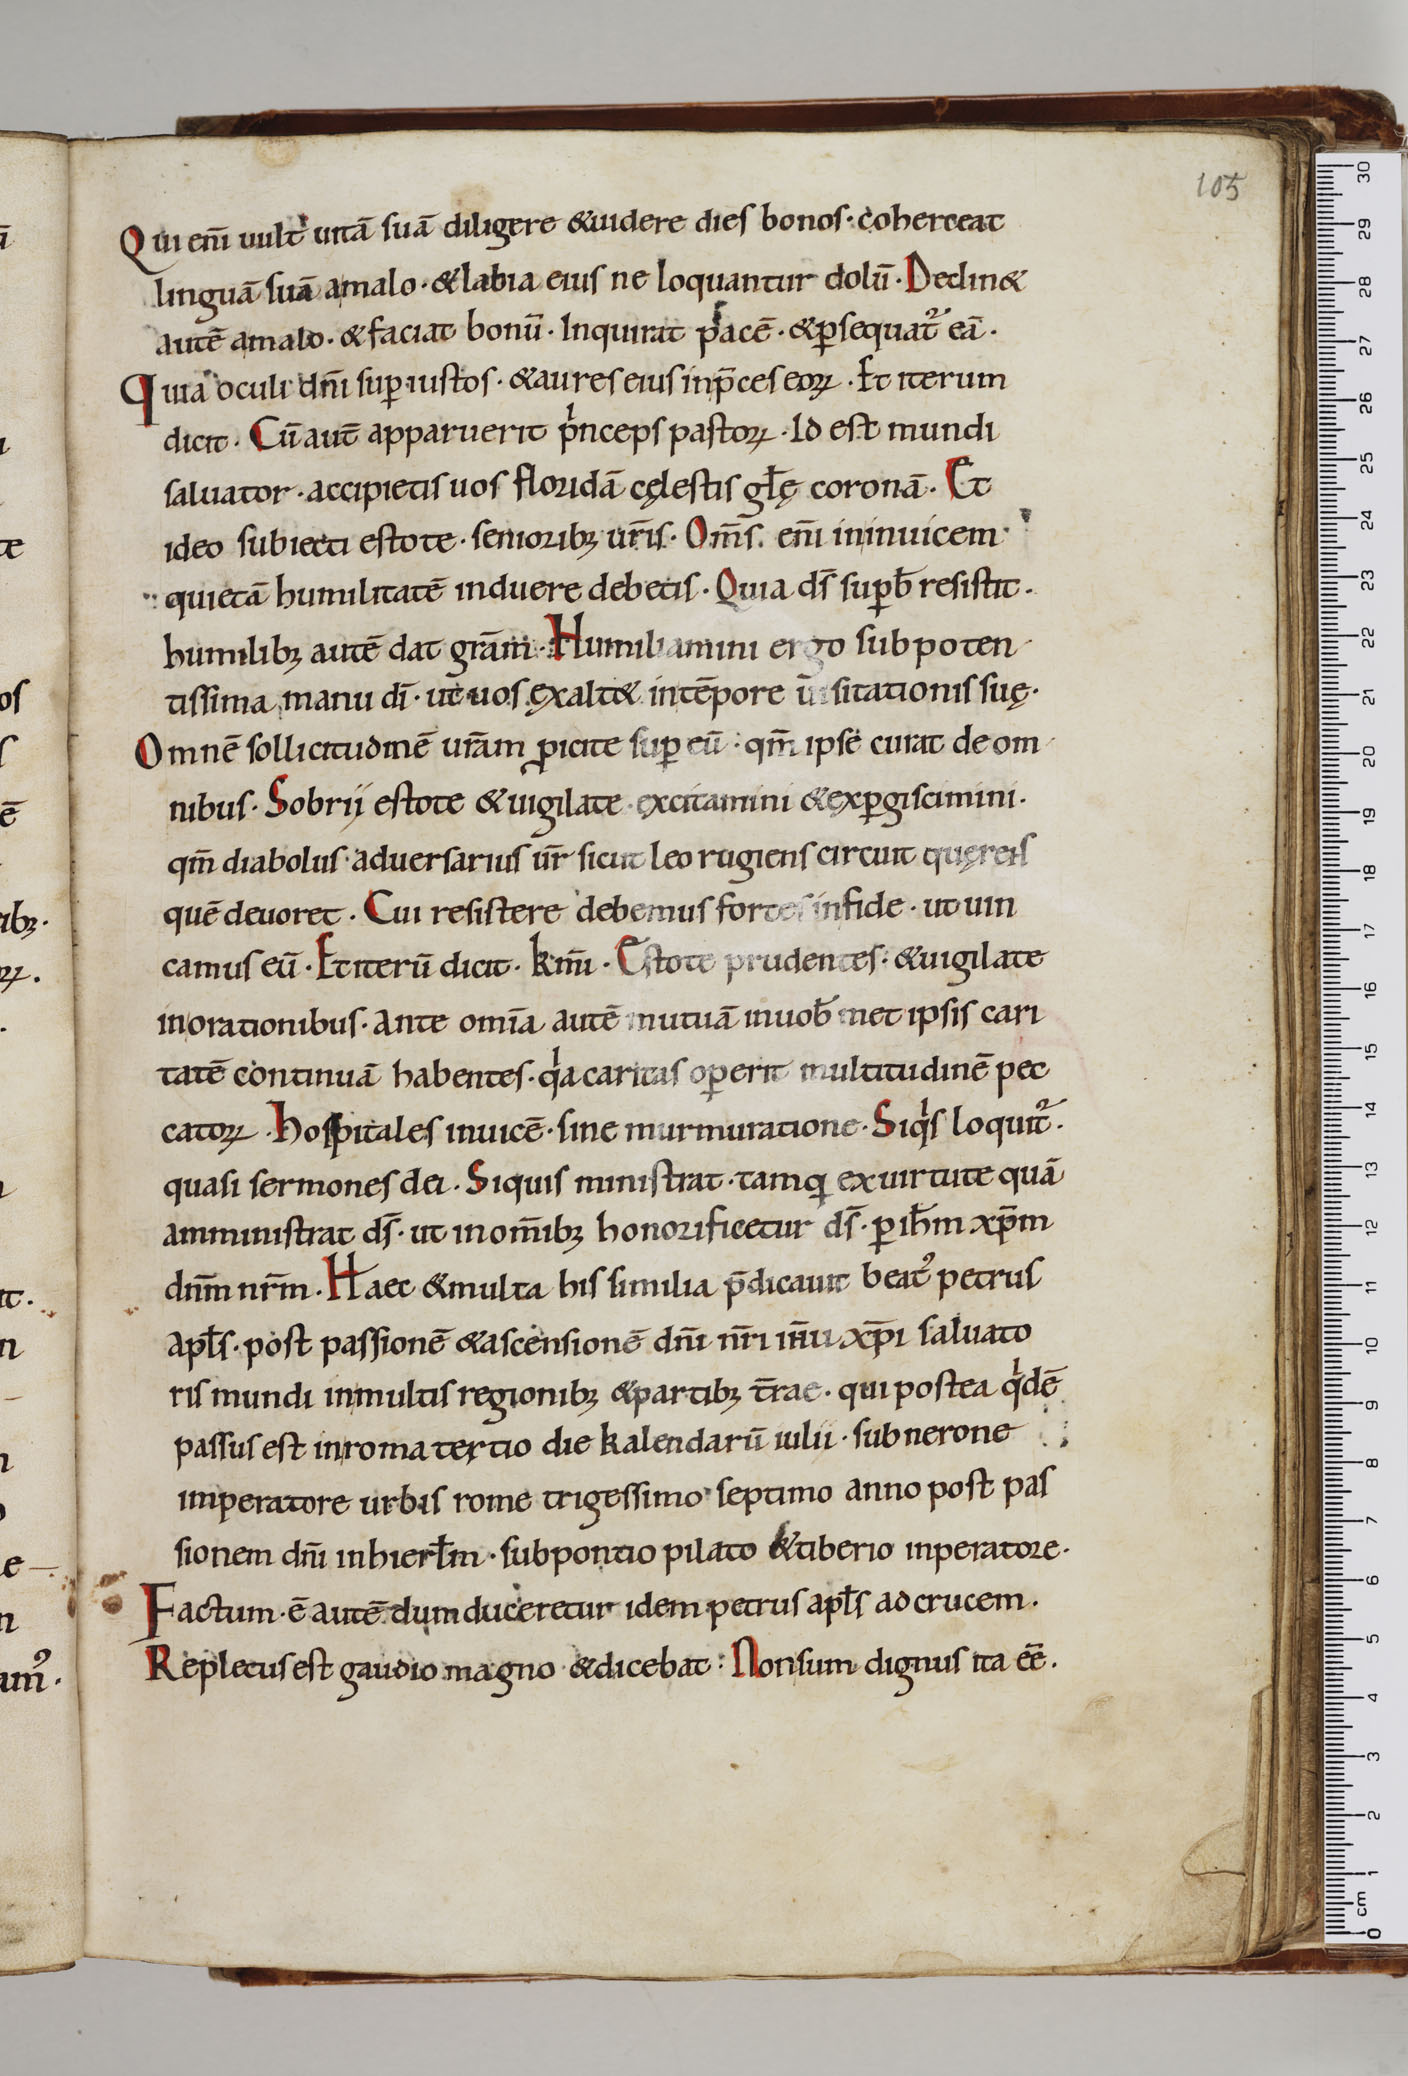 105
Qui em̄ uult uitā suā diligere &uidere dies bonos· coherceat
linguā suā amalo· &labia eius ne loquantur dolū· Declin&
autē amalo· &faciat bonū· Inquirat pacē· &p̱sequat᷒ eā·
Quia oculi dn̄i sup̱ iustos· &aures eius inp̄ces eoꝝ· Et iterum
dicit· Cū aut̄ apparuerit pͥnceps pastoꝝ· Id est mundi
saluator· accipietis uos floridā cęlestis głę coronā· Et
ideo subiecti estote· senioribꝫ ur̄is· Om̄s em̄ ininuicem
quietā humilitatē induere debetis· Quia ds̄ sup̱b̄ resistit·
humilibꝫ autē dat grām· Humiliamini ergo sub poten
tissima manu dī· ut uos exalt& intēpore uisitationis suę·
Omnē sollicitudinē ur̄am ꝓicite sup̱ eū· qm̄ ipse curat de om
nibus· Sobrij estote &uigilate excitamini &exp̱giscimini·
qm̄ diabolus aduersarius ur̄ sicut leo rugiens circuit quęrens
quē deuoret· Cui resistere debemus fortes infide· ut uin
camus eū· Et iterū dicit· km̄i· Estote prudentes· &uigilate
inorationibus· Ante om̄ia autē mutuā inuob̄ met ipsis cari
tatē continuā habentes· qͥa caritas op̱erit multitudinē pec
catoꝝ· Hospitales inuicē· sine murmuratione· Siqͥs loquit᷒·
quasi sermones dei· Siquis ministrat· tamq̱ exuirtute quā
amministrat ds̄· ut inom̄ibꝫ honorificetur ds̄· p̱ ih̄m xp̄m
dn̄m nr̄m· Haec &multa his similia p̄dicauit beat᷒ petrus
apłs· post passionē &ascensionē dn̄i nr̄i ih̄u xp̄i saluato
ris mundi inmultis regionibꝫ &partibꝫ t̄rae· qui postea qͥdē
passus est inroma tertio die kalendarū iulii· sub nerone
imperatore urbis rome trigessimo septimo anno post pas
sionem dn̄i inhierłm· sub pontio pilato &tiberio inperatore·
Factum· ē autē dum duceretur idem petrus apłs ad crucem·
Repletus est gaudio magno &dicebat· Non sum dignus ita eē·